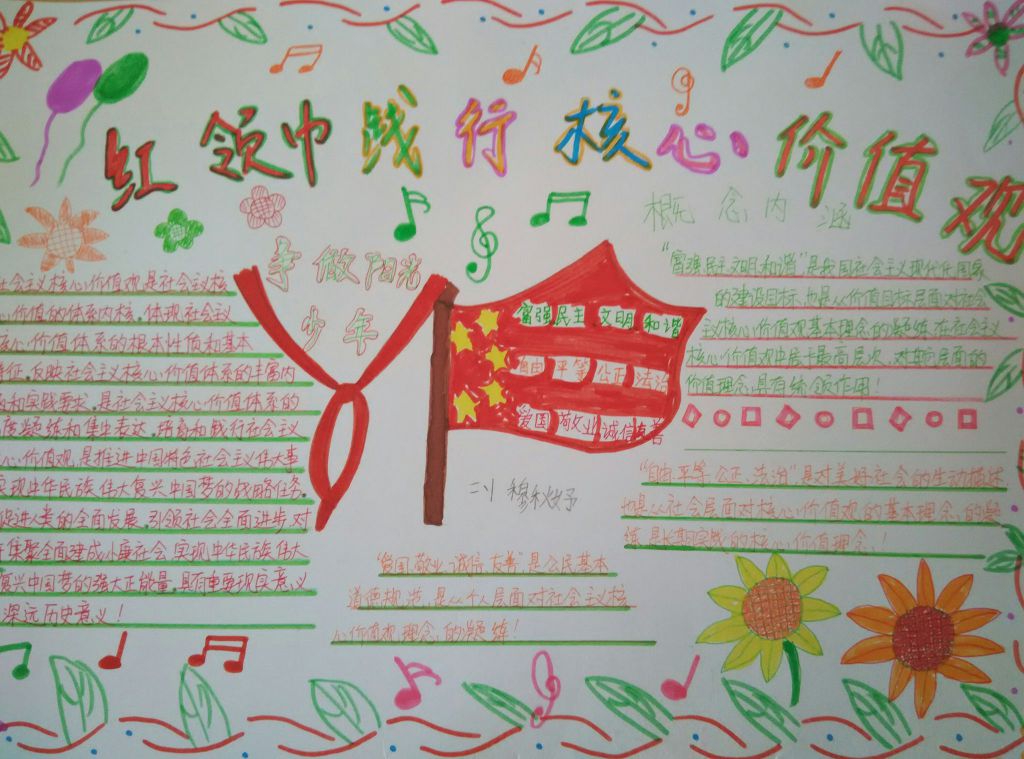 红领巾践行核心价值观
争做阳光
少年
社会主义核心价值观是社会主义核
心价值的体系内核,体现社会主义
核心价值体系的根本性质和基本
特征,反映社会主义核心价值体系的丰富内
和实践要求,是社会主义核心价值体系的
凝练和集中表达,培育和践行社会主义
心价值观,是推进中国特色社会主义伟大事
实现中华民族伟大复兴中国梦的战略任务,
促进人类的全面发展,引领社会全面进步,对
集聚全面建成小康社会实现中华民族伟大
复兴中国梦的强大正能量,具有重要现实意义
深远历史意义!
富强 民主 文明 和谐
自由 平等 公正 法治
爱国 敬业 诚信 友善
二、
“爱国、敬业、诚信、友善”是公民基本
道德规范,是从个人层面对社会主义核
心价值观理念的凝练!
概念内涵
“富强民主文明和谐”是我国社会主义现代化国家
的建设目标,也是从价值目标层面对社会
主义核心价值观基本理念的凝练,在社会主义
核心价值观中居于最高层次,对其他层面的
价值理念具有统领作用!
“自由、平等、公正、法治”是对美好社会的生动描述
也是从社会层面对核心价值观的基本理念的凝
练是长期实践的核心价值理念、!